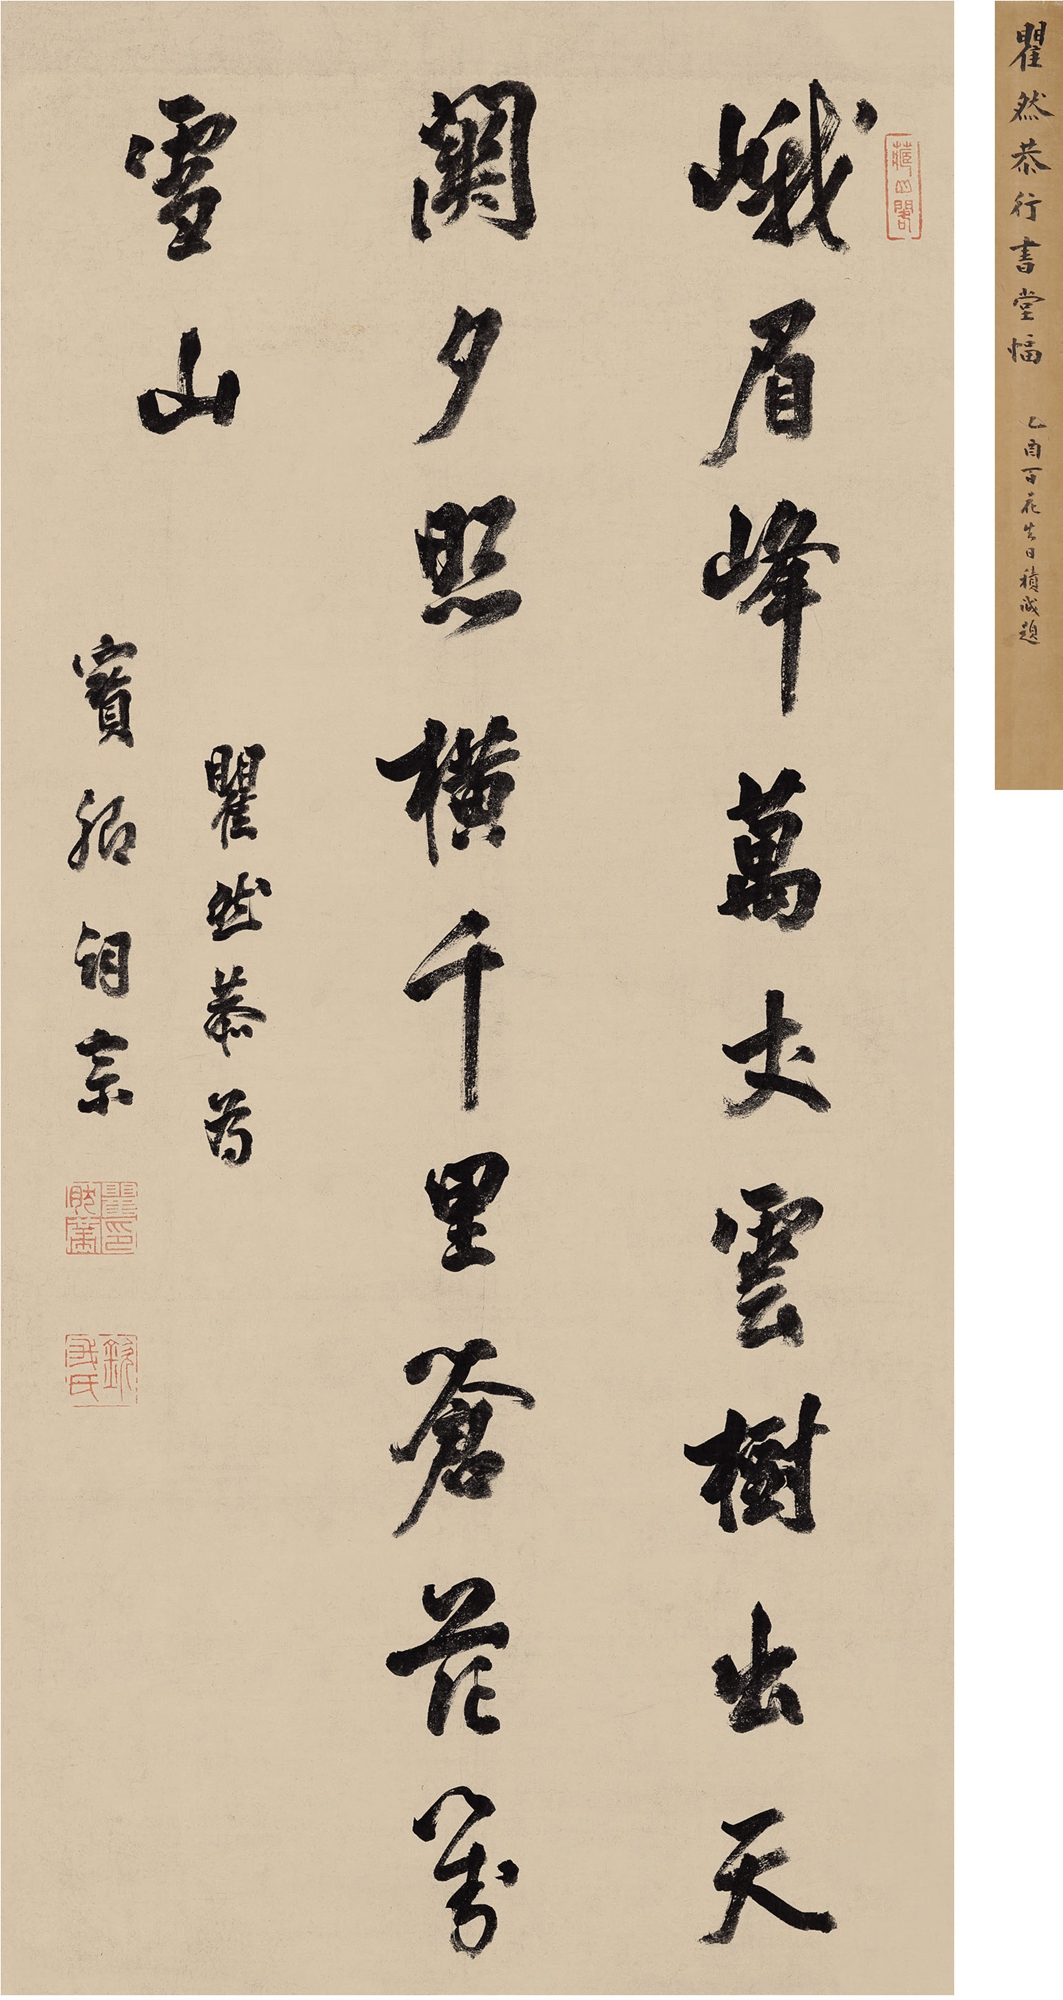 峨眉峰萬丈雲樹出天
闕夕照橫千里蒼茫萬
雪山
瞿然恭為
賓〼詞宗
瞿然恭行書堂幅
乙酉百花生日積誠題